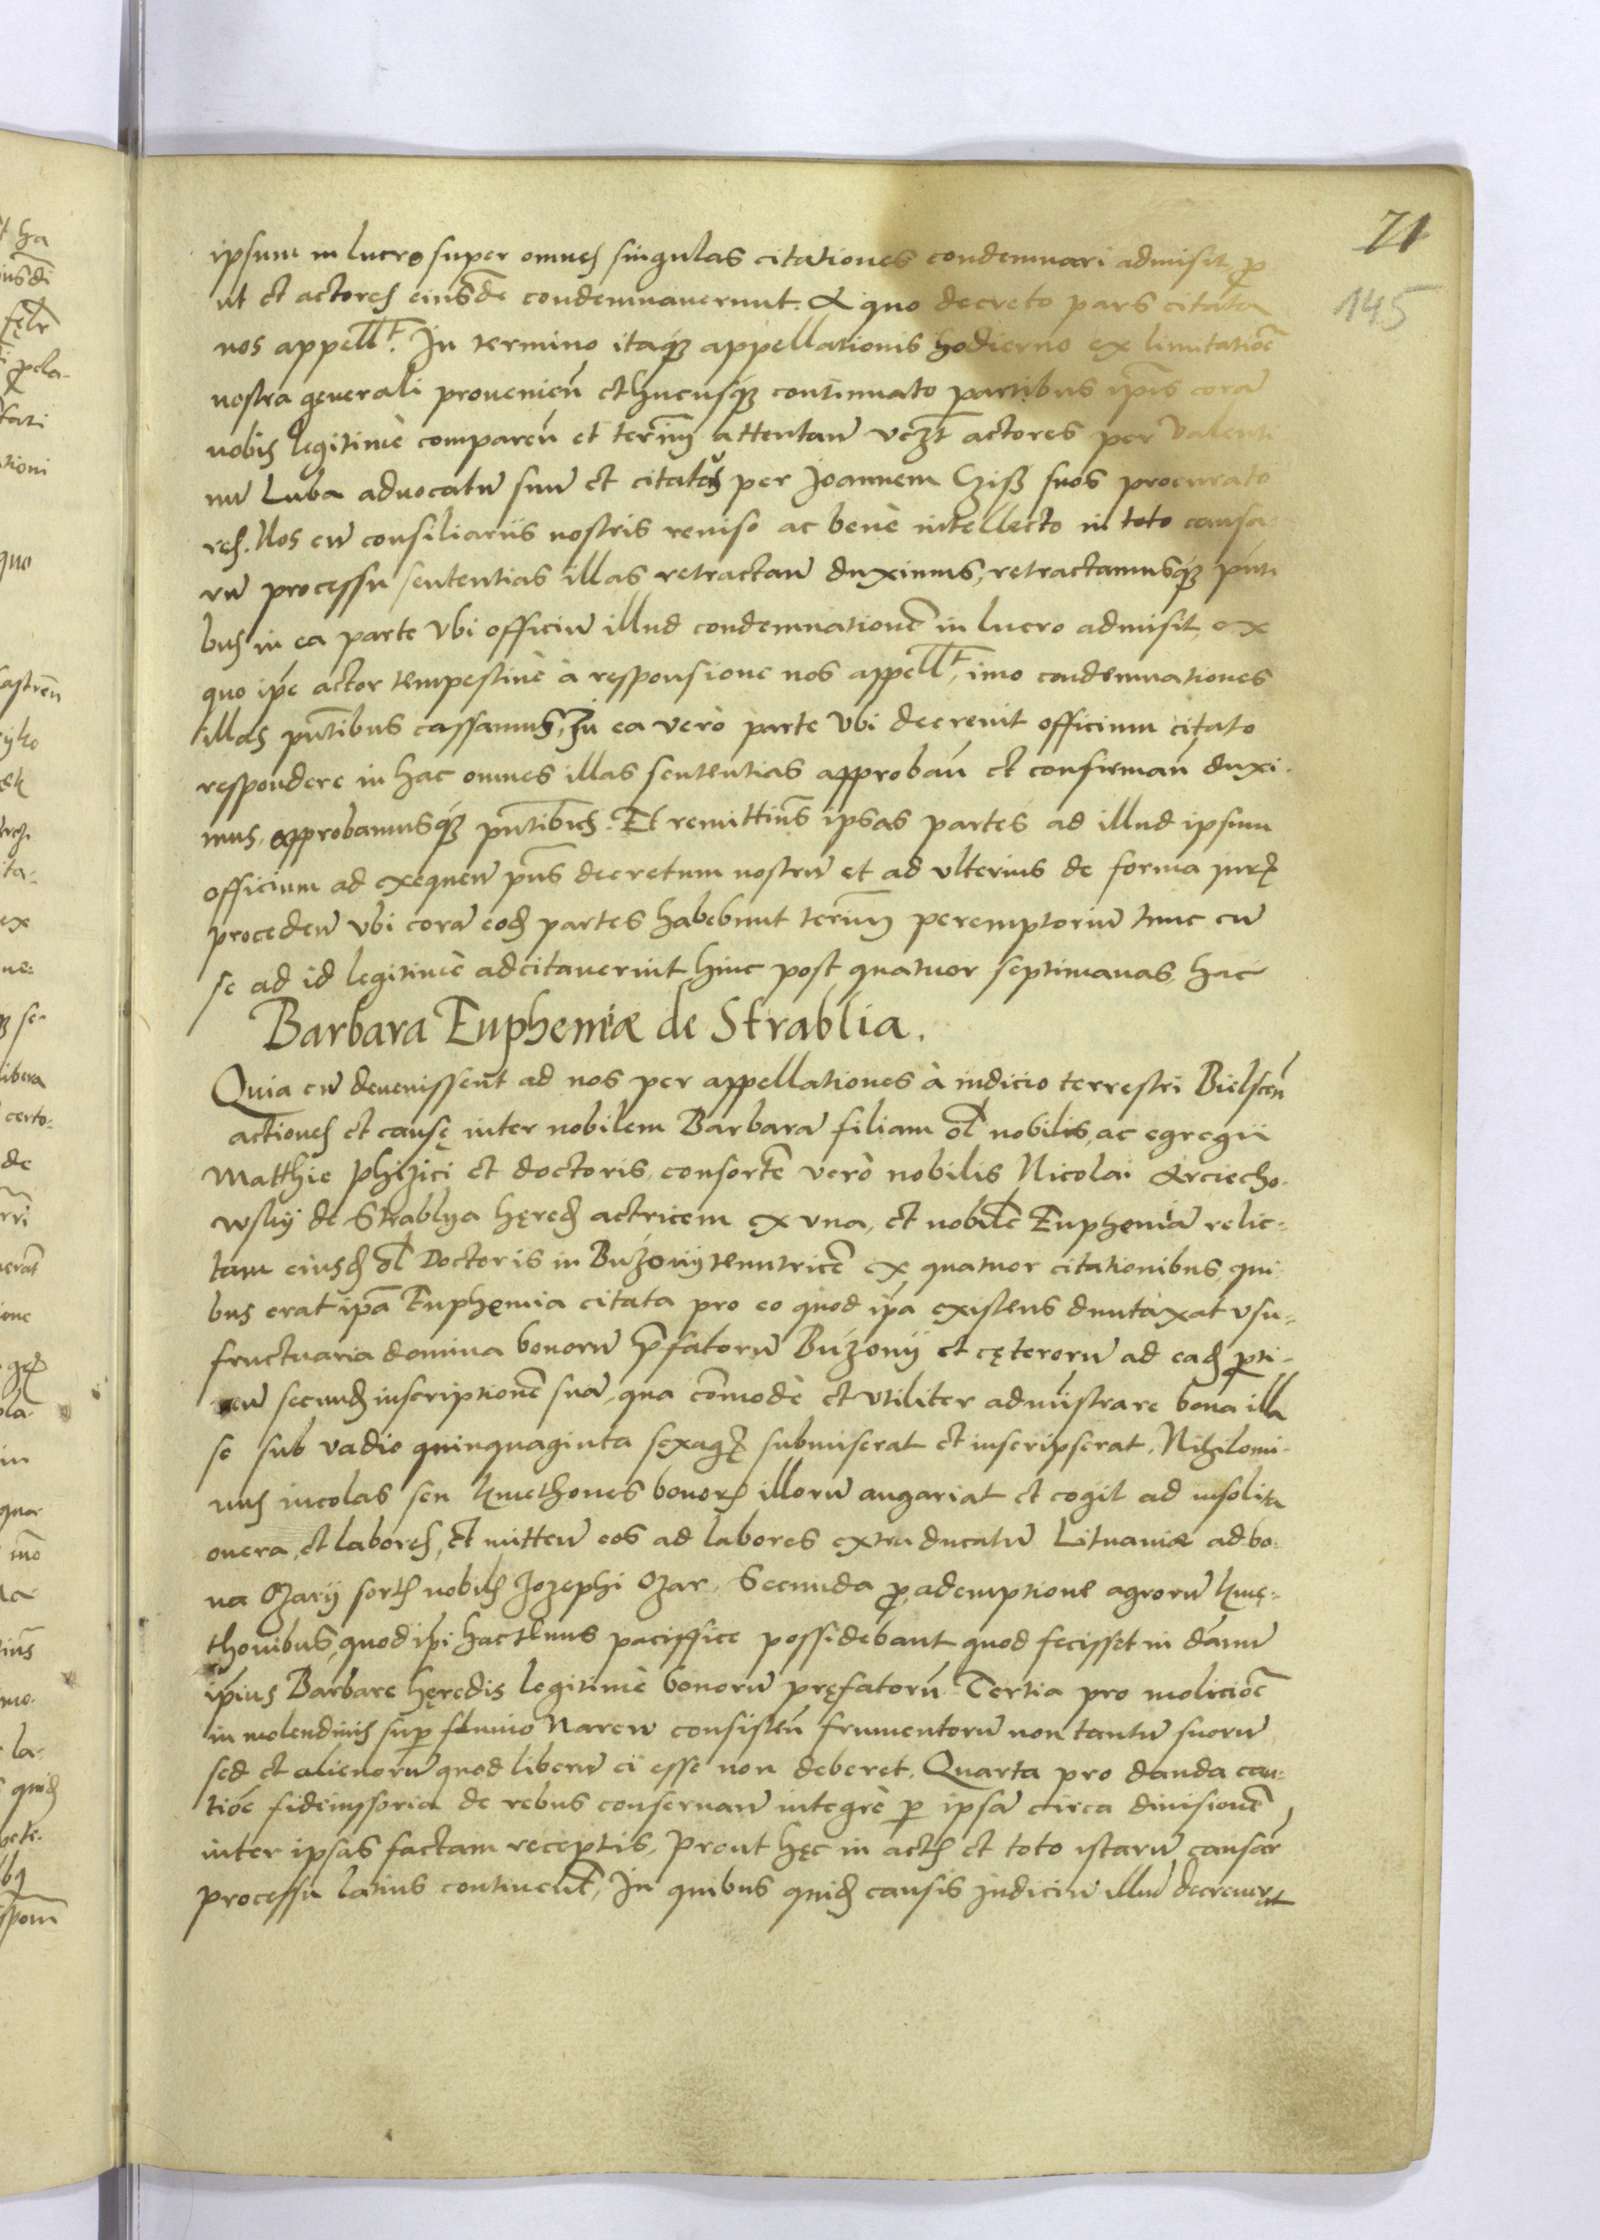 71
145
ipsum in lucro super omnes singulas citationes condemnari admisit, ꝓ
ut et actores eiusdē condemnauerunt. A quo decreto pars citata
nos appellt. In termino itaqȝ appellationis hodierno ex limitatiōe
nostra generali prouenien̄ et hucusqȝ continuato partibus ip̄is corā
nobis legitimè comparen̄ et termin attentan̄ vczt actores per Valenti
nū Luba aduocatū suū et citatus per Joannem Cziß suos procurato
res. Nos cū consiliariis nostris reuiso ac benè intellecto in toto causa
rū processu sententias illas retractan̄ duximus, retractamusqȝ pn̄ti
bus in ea parte vbi officiū illud condemnationē in lucro admisit, ex
quo ip̄e actor tempestiuè à responsione nos appellt, imo condemnationes
illas pn̄tibus cassamus, In ea verò parte vbi decreuit officium citato
respondere in hac omnes illas sententias approban̄ et confirman̄ duxi
mus, approbamusqȝ pn̄tibus. Et remittim̄s ipsas partes ad illud ipsum
officium ad exequen̄ pn̄s decretum nostrū et ad vlterius de forma juris
proceden̄ vbi corā eodem partes habebunt termin peremptoriū tunc cū
se ad id legitimè adcitauerint hinc post quatuor septimanas, hac
Barbara Euphemiæ de Strablia.
Quia cū deuenissent ad nos per appellationes à iudicio terrestri Bielscen̄
actiones et causę inter nobilem Barbarā filiam ol nobilis, ac egregii
Matthie phizici et doctoris, consortē verò nobilis Nicolai Arciecho-
wskÿ de Strablya hęredem actricem ex vna, et nobilē Euphemiā relic-
tam eiusdem ol Doctoris in Búzonÿ tenutricē ex quatuor citationibus, qui
bus erat ip̄a Euphemia citata pro eo quod ip̄a existens duntaxat vsu-
fructuaria domina bonorū p̄fatorū Búzonÿ et cęterorū ad eadem ꝑti-
nen̄ secundum inscriptionē suā, qua cōmodè et vtiliter admi̅strare bona illa
se sub vadio quinquaginta sexagenis submiserat et inscripserat. Nihilomi-
nus incolas seu kmethones bonorum illorū angariat et cogit ad insolita
onera, et labores, et mitten̄ eos ad labores extra ducatū Lituaniæ ad bo-
na Ozarÿ sortis nobilis Jozephi Ozar. Secunda ꝓ ademptione agrorū kmę-
thonibus, quod ip̄i hactenus paciffice possidebant quod fecisset in dānū
ip̄ius Barbare hęredis legitimè bonorū pręfatorū. Tertia pro moliciōe
in molendinis suꝑ fluuio Narew consisten̄ frumentorū non tantū suorū
sed et alienorū quod liberū ei esse non deberet. Quarta pro danda cau-
tiōe fideiussoria de rebus conseruan̄ integrè ꝑ ipsā circa diuisionē
inter ipsas factam receptis, Prout hęc in actis et toto istarū causar
processu latius continent, In quibus quidem causis Iudiciū illud decreuerat